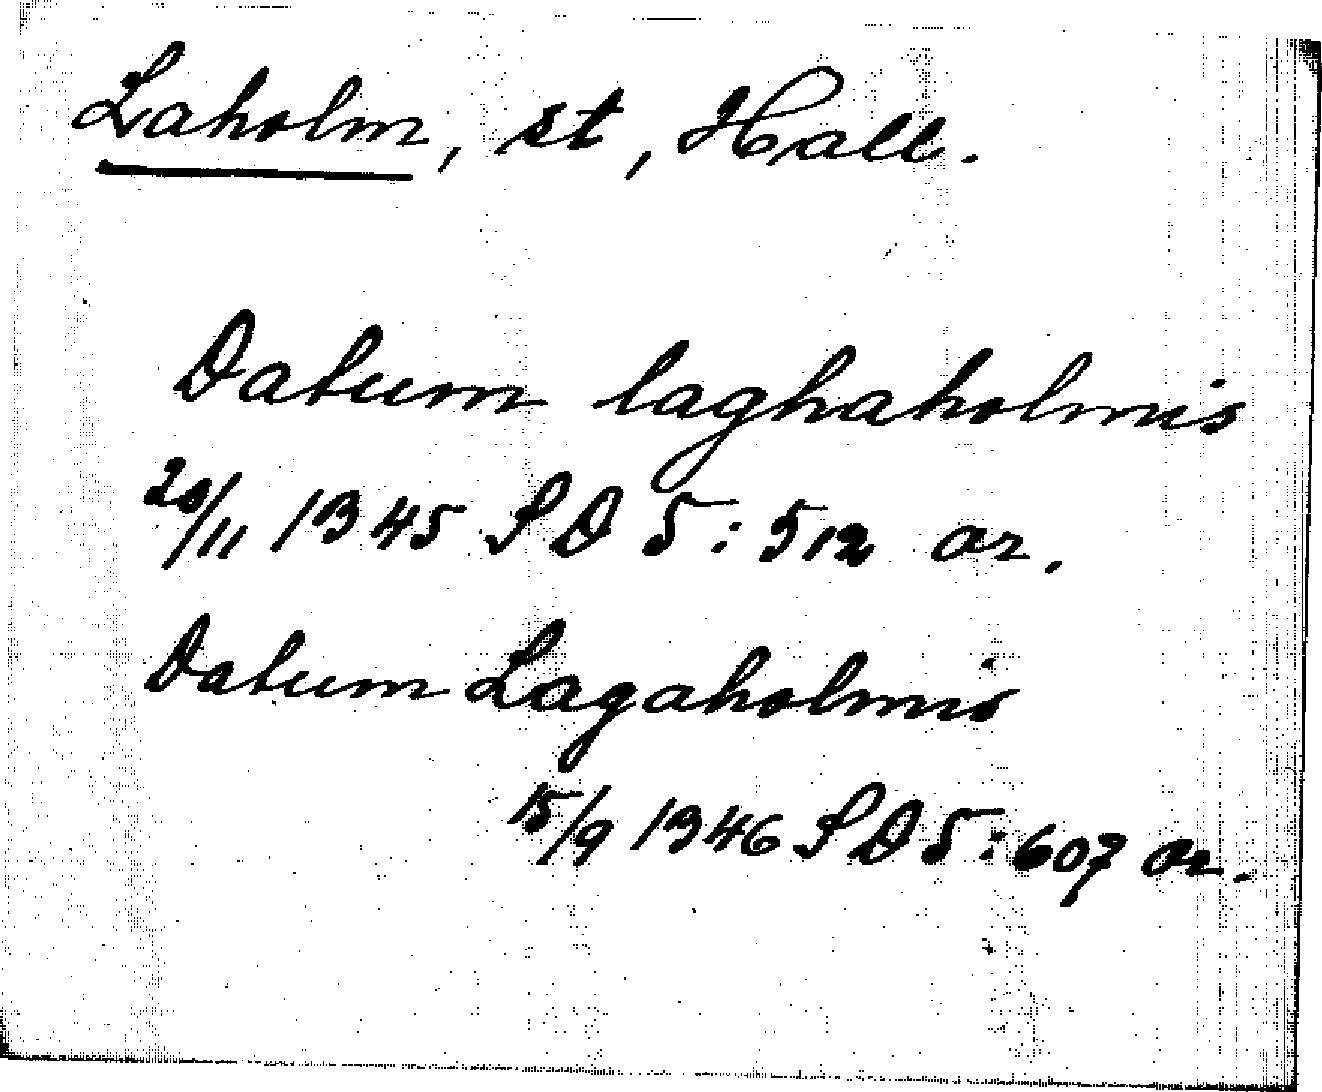 Laholm, st, Hall.
Datum laghaholmis
20/11 1345 SD 5:512 or.
Datum Lagaholmis
15/9 1346 SD 5:607 or.